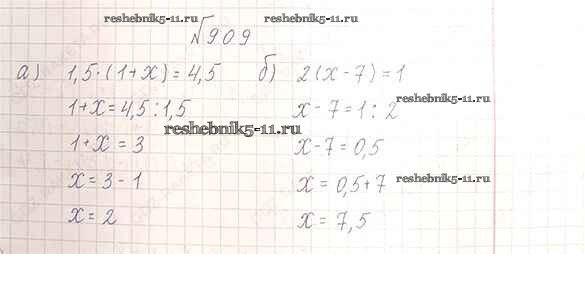 reshebnik5-11.ru
reshebnik5-11.ru
№909
а) 1,5·(1+x)=4,5
1+x=4,5:1,5
reshebnik5-11.ru
1+x=3
x=3-1
x=2
б) 2(x-7)=1
x-7=1:2
x-7=0,5
x=0,5+7
x=7,5
reshebnik5-11.ru
reshebnik5-11.ru